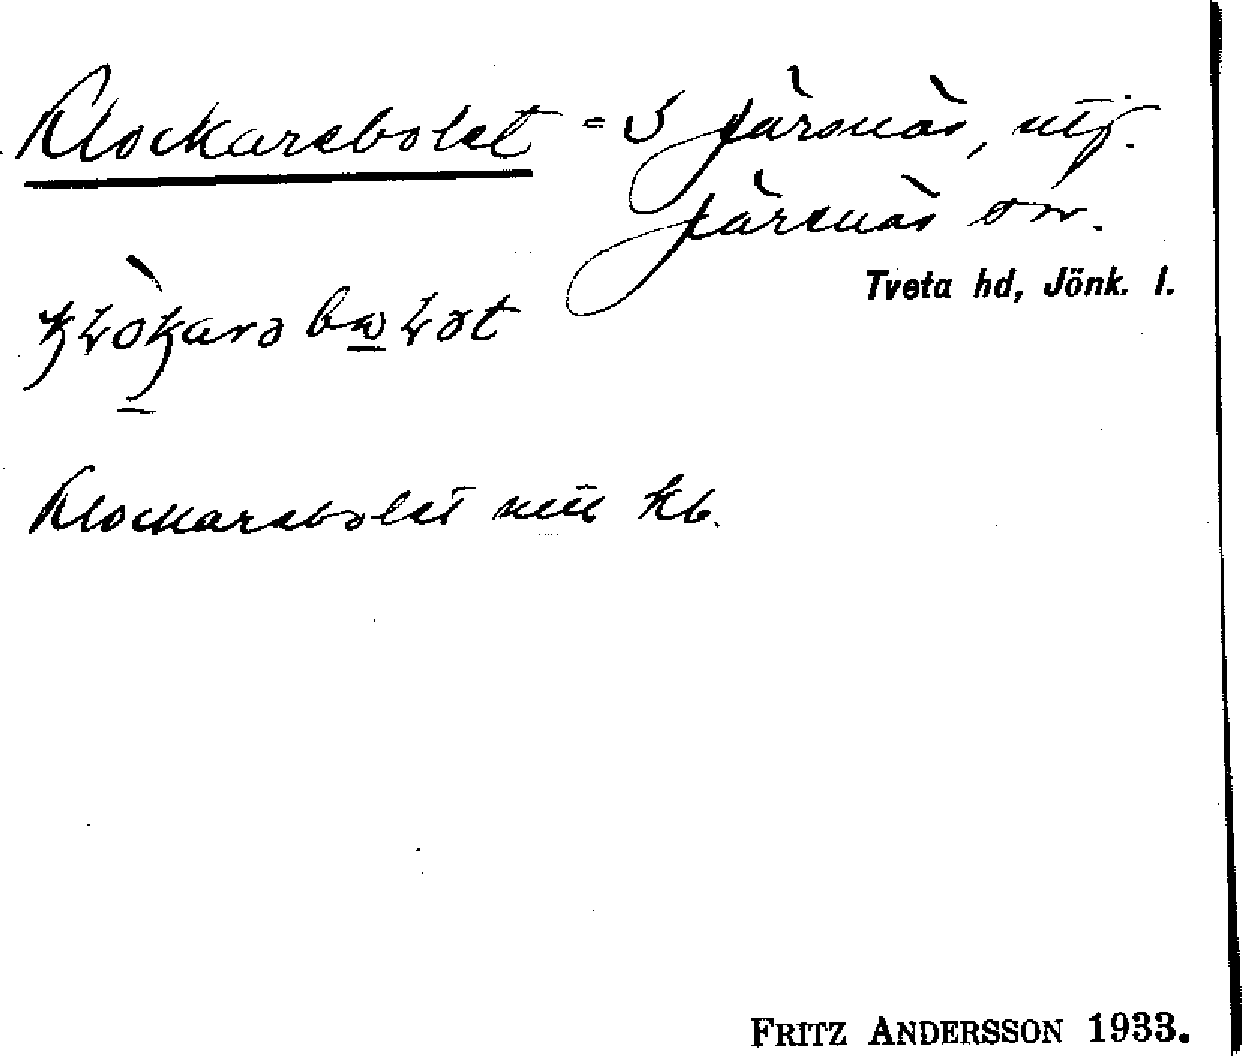 Klockarebolet = S Järsnäs, utj.
Järsnäs sn.
Tveta hd, Jönk. l.
Klockarebolet kb.
FRITZ ANDERSSON 1933.